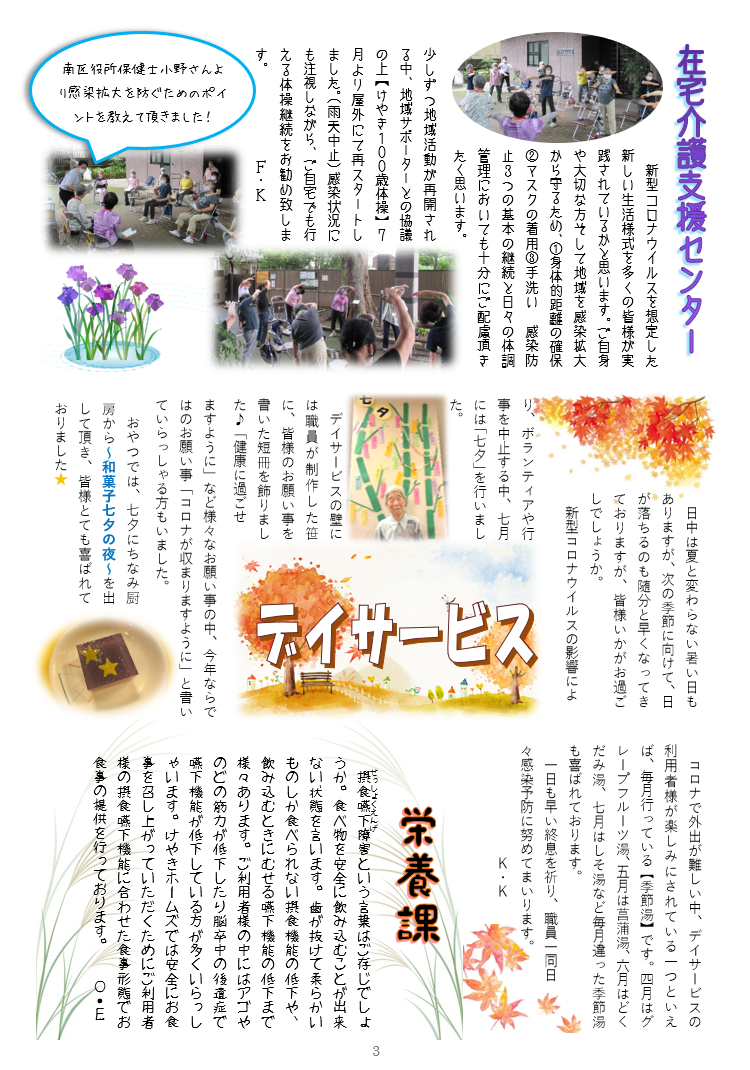 在宅介護支援センター
新型コロナウイルスを想定した
新しい生活様式を多くの皆様が実
践されているかと思います。ご自身
や大切な方そして地域を感染拡大
から守るため、①身体的距離の確保
②マスクの着用③手洗い　感染防
止3つの基本の継続と日々の体調
管理においても十分にご配慮頂き
たく思います。
少しずつ地域活動が再開され
る中、地域サポーターとの協議
の上【けやき100歳体操】7
月より屋外にて再スタートし
ました。(雨天中止)感染状況に
も注視しながら、ご自宅でも行
える体操継続をお勧め致しま
す。
F・K
南区役所保健士小野さんよ
り感染拡大を防ぐためのポイ
ントを教えて頂きました！
日中は夏と変わらない暑い日も
ありますが、次の季節に向けて、日
が落ちるのも随分と早くなってき
ておりますが、皆様いかがお過ご
しでしょうか。
新型コロナウイルスの影響によ
り、ボランティアや行
事を中止する中、七月
には「七夕」を行いまし
た。
七夕
デイサービスの壁に
は職員が制作した笹
に、皆様のお願い事を
書いた短冊を飾りまし
た♪「健康に過ごせ
ますように」など様々なお願い事の中、今年ならで
はのお願い事「コロナが収まりますように」と書い
ていらっしゃる方もいました。
おやつでは、七夕にちなみ厨
房から～和菓子七夕の夜～を出
して頂き、皆様とても喜ばれて
おりました★
デイサービス
コロナで外出が難しい中、デイサービスの
利用者様が楽しみにされている一つといえ
ば、毎月行っている【季節湯】です。四月はグ
レープフルーツ湯、五月は菖蒲湯、六月はどく
だみ湯、七月はしそ湯など毎月違った季節湯
も喜ばれております。
一日も早い終息を祈り、職員一同日
々感染予防に努めてまいります。
K・K
栄養課
せっしょくえんげ
摂食嚥下障害という言葉はご存じでしょ
うか。食べ物を安全に飲み込むことが出来
ない状態を言います。歯が抜けて柔らかい
ものしか食べられない摂食機能の低下や、
飲み込むときにむせる嚥下機能の低下まで
様々あります。ご利用者様の中にはアゴや
のどの筋力が低下したり脳卒中の後遺症で
嚥下機能が低下している方が多くいらっし
ゃいます。けやきホームズでは安全にお食
事を召し上がっていただくためにご利用者
様の摂食嚥下機能に合わせた食事形態でお
食事の提供を行っております。
O・E
3